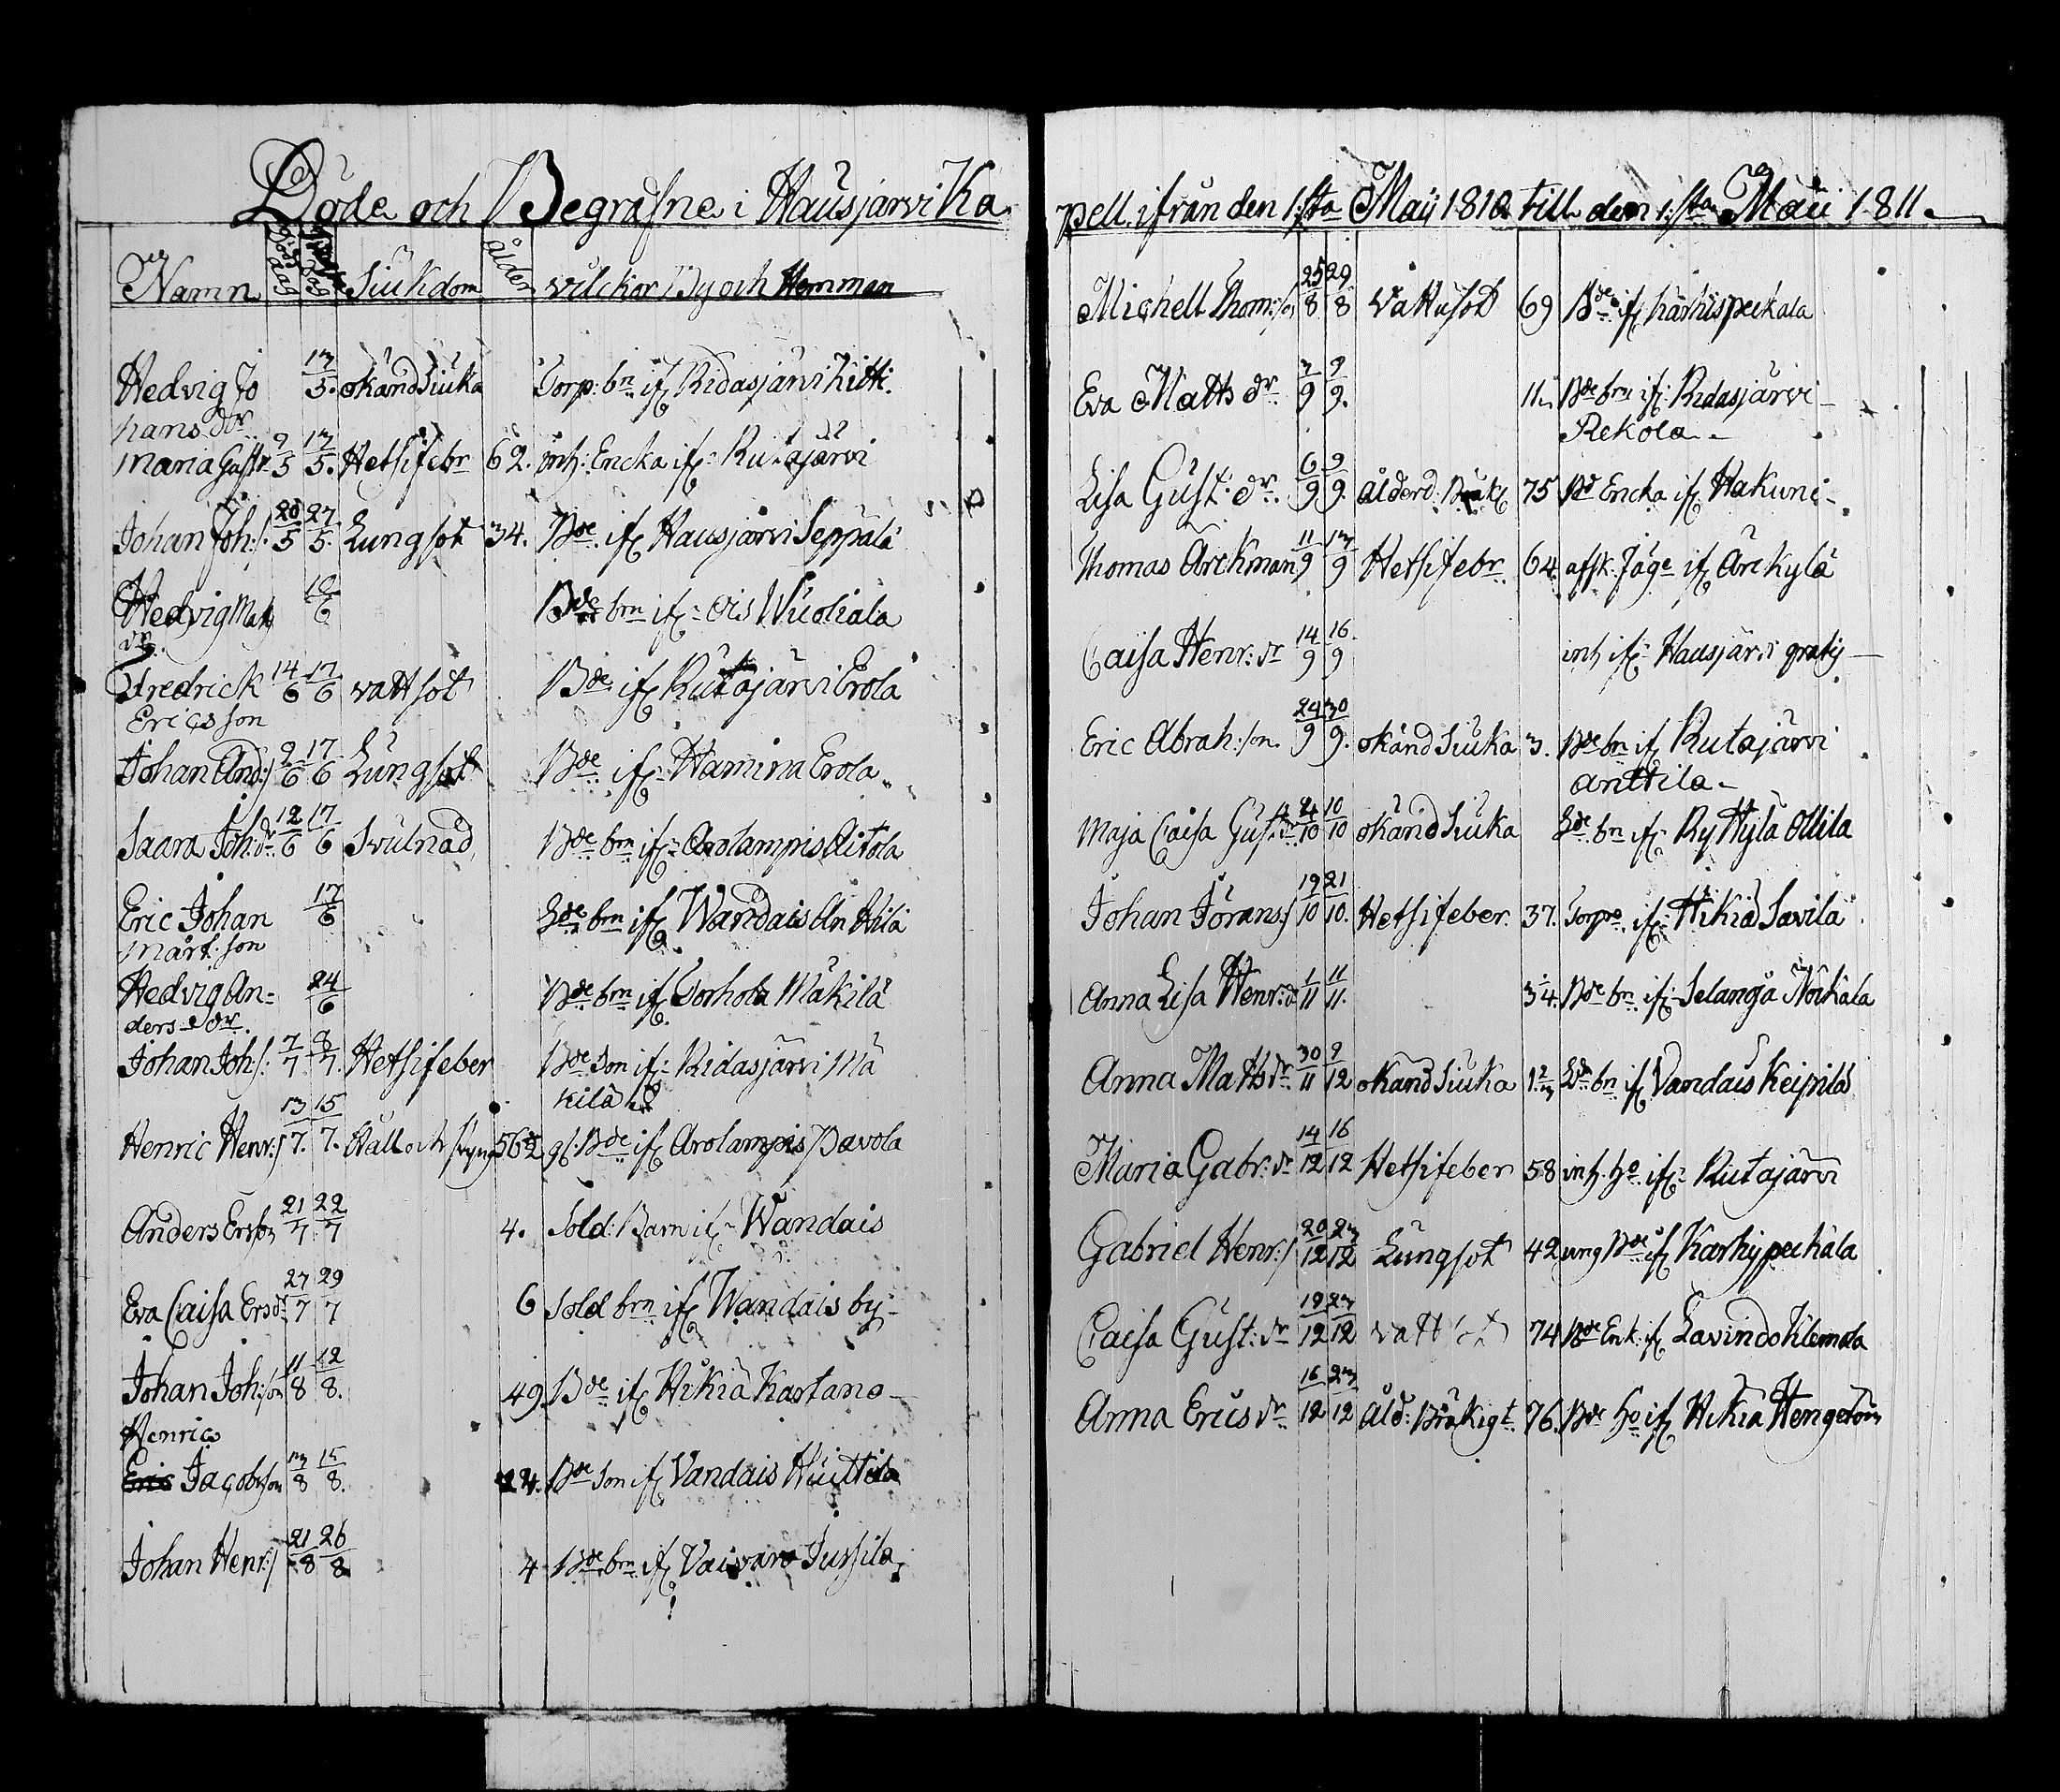 Döde och Begrafne i Hausjärvi Ka
Namn Död dag Siukdom ålder vilckor By och Hemman
Hedvig Jo 13/5. okänd Siuka Torp: bn if: Ridasjärvi Kitti.
hans dr
Maria Gustr 9/5 13/5. Hetsifebr 62. inh: Encka if: Rutajärvi
Johan Joh:s. 20/5 27/5. Lungsot 34. Bde if: Hausjärvi Seppälä
Hedvig Matts 10/6 Bde brn if: Ois Wuohiala
dr.
Fredrick 14/6 17/6 vattsot Bde if: Rutajärvi Erola
Ericsson
Johan And:s 9/6 17/6 Lungsot Bde if: Hamina Erola
Saara Joh:dr 12/6 17/6 Svulnad Bde brn if: Arolampis Aitola
Eric Johan 17/6 Lde brn if: Wandais Anttila
Mårt:son
Hedvig An= 24/6 Bde brn if: Torhola Mäkilä
ders dr.
Johan Joh:s: 7/7 8/7. Hetsifeber Bde Son if: Ridasjärvi Mä
kilä
Henric Henr:s 13/7. 15/7. Håll och styng 56 gl. Bde if: Arolampis Pavola
Anders Ersson 21/7 22/7 4. Sold: Barn if: Wandais
Eva Caisa Ersdr 27/7 29/7 6 Sold brn if: Wandais by
Johan Joh:son 11/8 12/8. 49 Bde if: Hikiä Kartano
Henric
Eric Jacobsson 13/8 15/8. 24. Bde Son if: Vandais Huittila
Johan Henr:s 21/8 26/8 4 Bde brn if: Vaivaro Jussila
pell. ifrån den 1:sta Maij 1810 till den 1:sta Maii 1811.
Michell Thom:son 25/8 29/8 Vattusot 69 Bde if: Karhispeckala
Eva Matts dr. 3/9 9/9. 11 Bde brn if: Ridasjärvi
Rekola
Lisa Gust. dr. 6/9 9/9. ålderd: Bräkl 75 Bd Encka if: Hakuni
Thomas Arckman 11/9 13/9 Hetsifebr. 64 afsk. Jäge if: Arckylä
Caisa Henr:dr 14/9 16/9 inh if: Hausjärvi
Eric Abrah:son. 24/9 30/9. okänd Siuka 3. Bde bn if: Rutajärvi
Anttila
Maja Caisa Gust:dr 4/10 10/10 okänd Siuka Lde bn if: Ryttylä Ollila
Johan Jörans:s 19/10 21/10. Hetsifeber. 37. Torpe if: Hikiä Savila
Anna Lisa Henr:dr 1/11 11/11. 3/4. Bde bn if: Selänojä
Anna Matts dr 30/11 9/12 okänd Siuka 1. Lde bn if: Vandais Keipilä
Maria Gabr:dr 14/12 16/12 Hetsifeber 58 inh. ho. if: Rutajärvi
Gabriel Henr:s 20/12 23/12 Lungsot 42 ung Bde if: Karhipeckala
Caisa Gust:dr 19/12 23/12 vattsot 74 Bde Enk: if: Lavindo Klemola
Anna Ericsdr 16/12 23/12 Åld: Bräkligt 76. Bde ho if: Hikiä